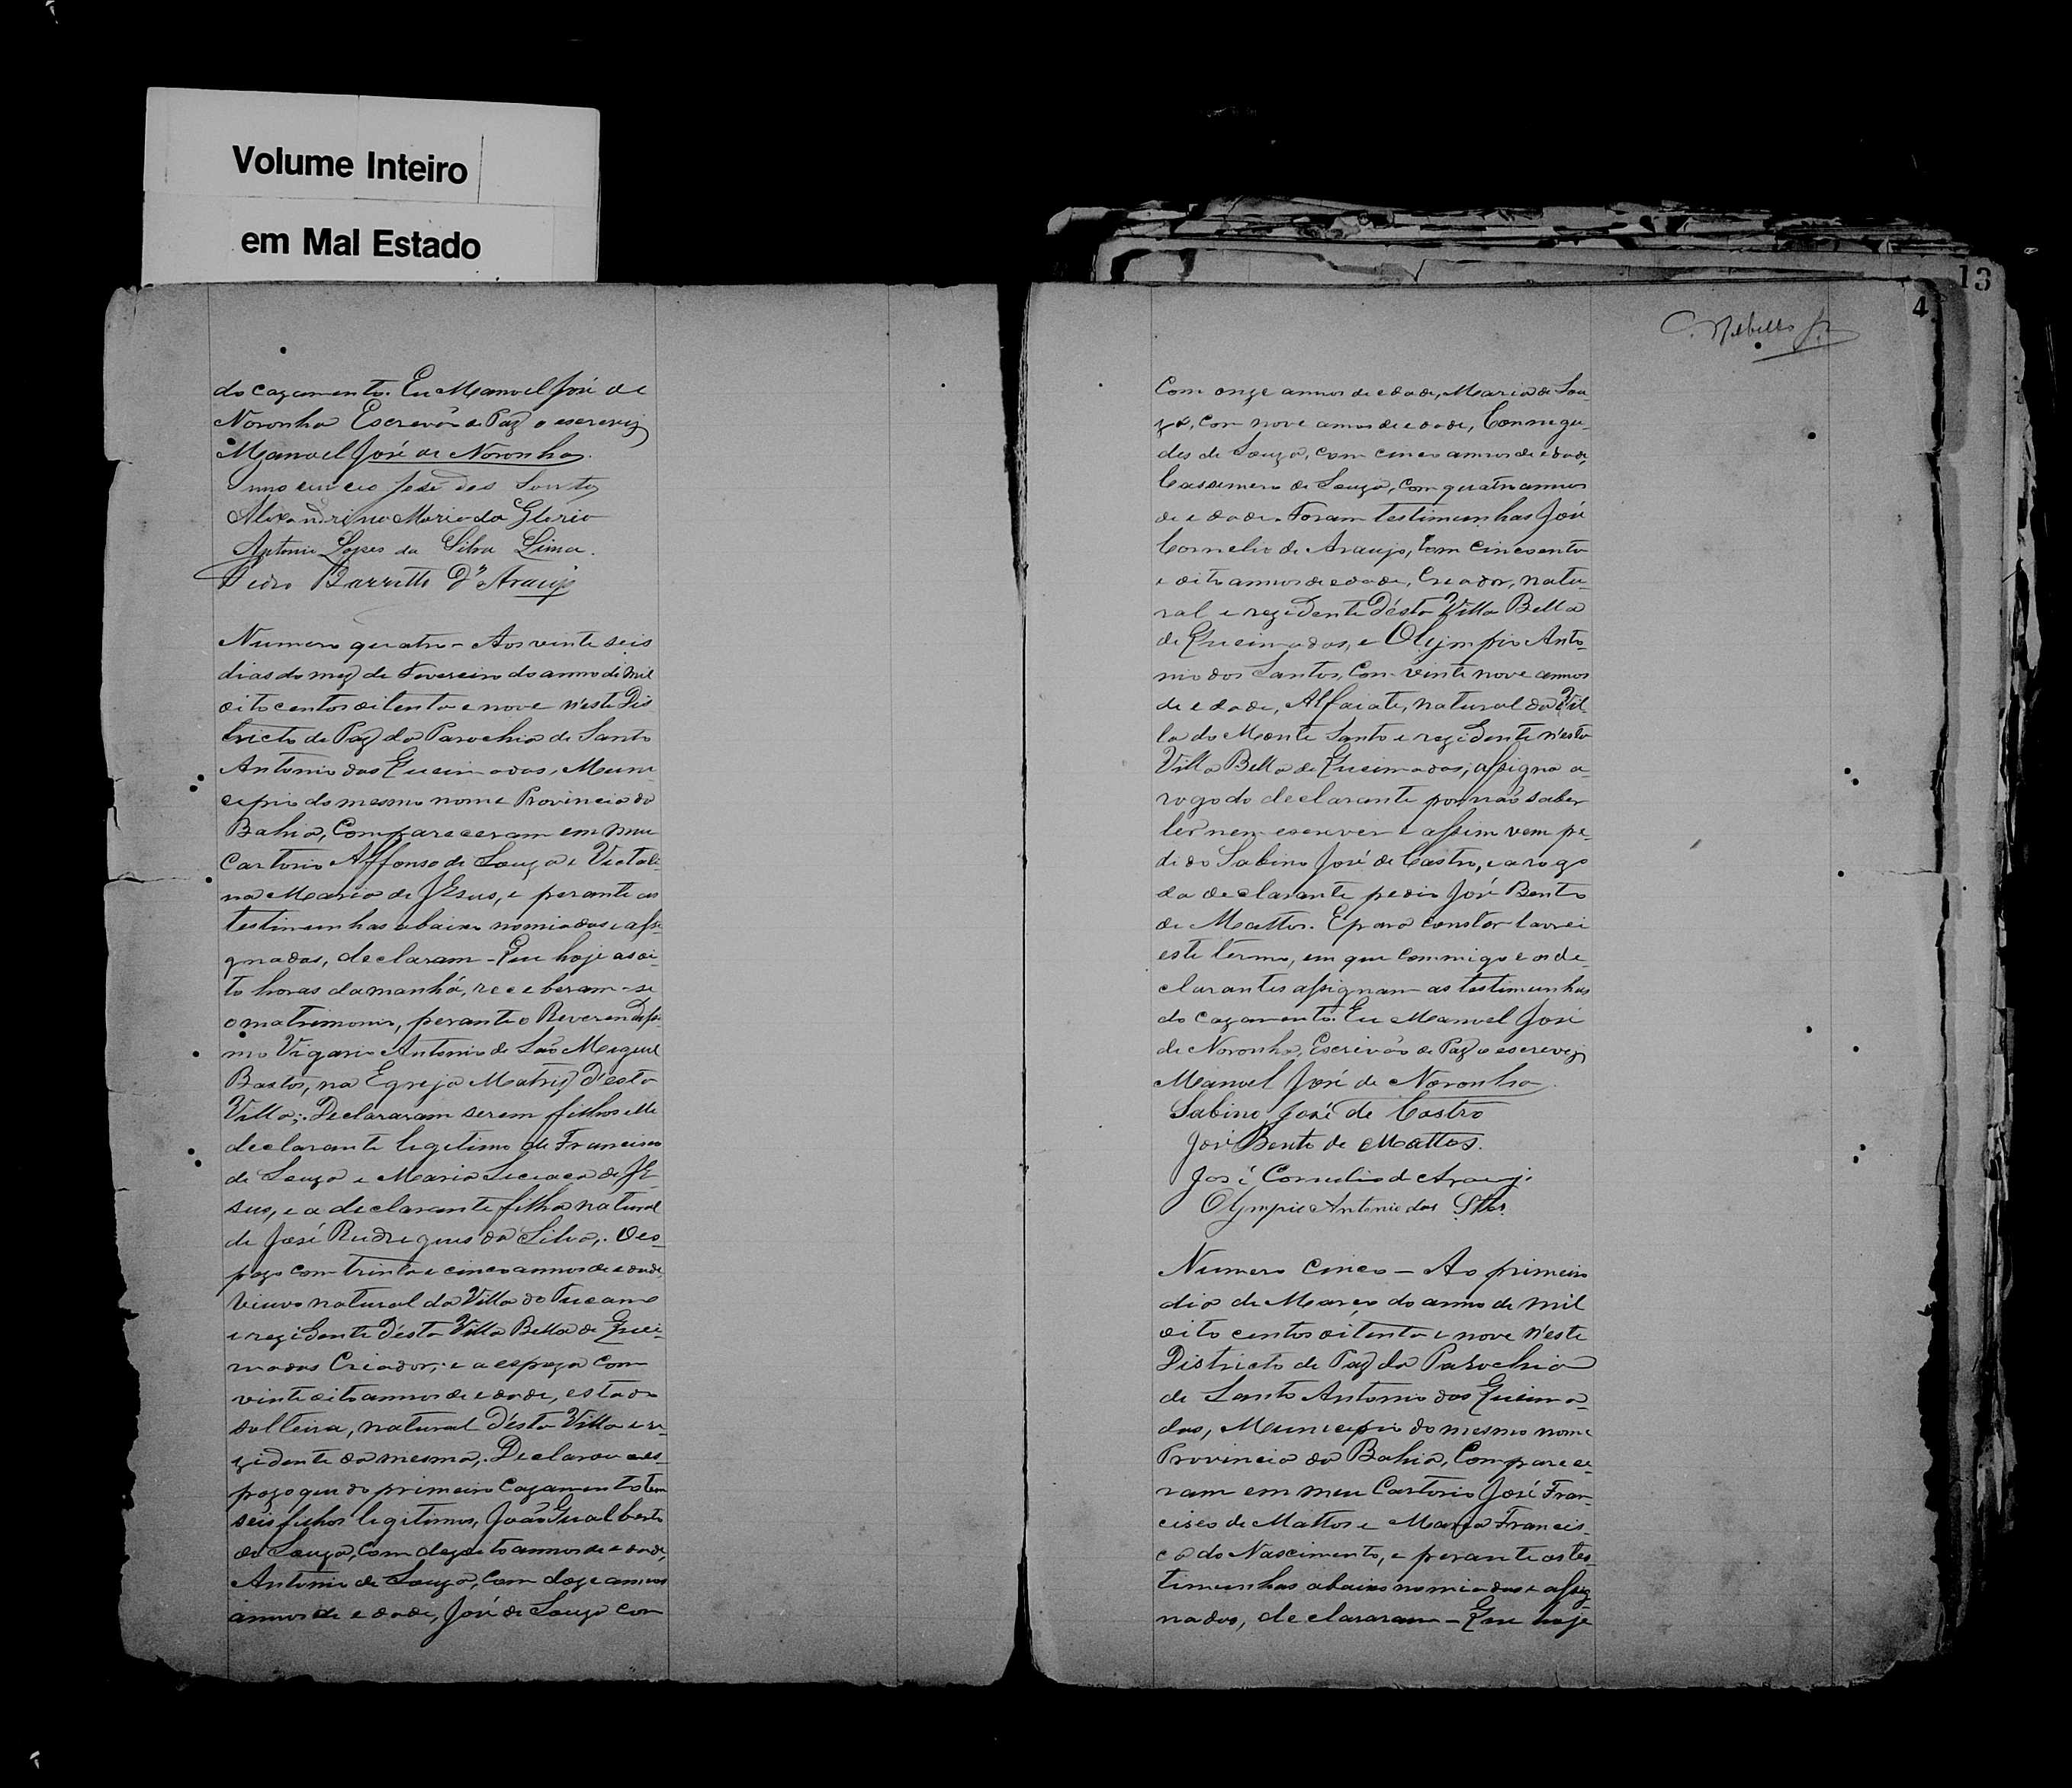 Volume Inteiro
em Mal Estado
do cazamento. Eu Manoel José de
Noronha Escrevão de Paz o escreviz
Manoel José de Noronha.
Innocencio José dos Santos
Alexandrino Maria da Gloria
Antonio Lopes da Silva Lima.
Pedro Barretto d'Araujo
Numero quatro - Aos vinte seis
dias do mez de Fevereiro do anno de mil
oito centos oitenta e nove n'este Dis
tricto de Paz da Parochia de Santo
Antonio das Queimadas, Muni
cipio do mesmo nome Provincia da
Bahia, Compareceram em meu
Cartorio Affonso de Souza e Victali
na Maria de JEsus, e perante as
testimunhas abaixo nomiadas e assi
gnadas, declaram - Que hoje as oi-
to horas da manhã, receberam-se
o matrimonio, perante o Reverendissi
mo Vigario Antonio de São Miguel
Bastos, na Egreja Matriz d'esta
Villa; Declararam serem filhos elle
declarante legitimo de Francisco
de Souza e Maria de JE-
sus, e a declarante filha natural
de José Rudrigues da Silva, O es-
pozo com trinta e cinco annos de edade,
Viuvo natural da Villa do Tucano
e rezidente d'esta Villa Bella de Quei-
madas Criador, e a espoza com
vinte oito annos de edade, estado
solteira, natural d'esta Villa e re-
zidente da mesma, Declarou o es-
pozo que do primeiro Cazamento tem
seis filhos legitimos, João Gualberto
de Souza, com dezoito annos de edade,
Antonio de Souza, com doze annos
annos de edade, José de Souza com
13
4
C. Rebello Jr
Com onze annos de edade, Maria de Sou-
za, com nove annos de edade,
des de Souza, com cinco annos de edade,
Cassemero de Souza, com quatro annos
de edade. Foram testimunhas José
Cornelio de Araujo, Com Cincoenta
e oito annos de edade, Criador, natu-
ral e rezidente d'esta Villa Bella
de Queimadas, e Olympio Anto-
nio dos Santos, Com vinte nove annos
de edade, Alfaiate, natural da Vil-
la do Monte Santo e rezidente n'esta
Villa Bella de Queimadas, assigna a-
rogo do declarante por não saber
ler nem escrever e assim vem pe-
dido Sabino José de Castro, e a rogo
da declarante pedio José Bento
de Mattos. E para constar lavrei
este termo, em que commigo e os de-
clarantes assignam as testimunhas
do cazamento. Eu Manoel José
de Noronha, Escrivão de Paz o escreviz
Manoel José de Noronha.
Sabino José de Castro
José Bento de Mattos.
José Cornelio de Araujo
Olympio Antonio dos Sttos.
Numero Cinco - Ao primeiro
dia de Março do anno de mil
oito centos oitenta e nove n'este
Districto de Paz da Parochia
de Santo Antonio das Queima-
das, Municipio do mesmo nome
Provincia da Bahia, Comparece-
ram em meu Cartorio José Fran-
cisco de Mattos e Maria Francis-
ca do Nascimento, e perante as tes-
timunhas abaixo nomiadas e assig-
nadas, declararam - Que hoje